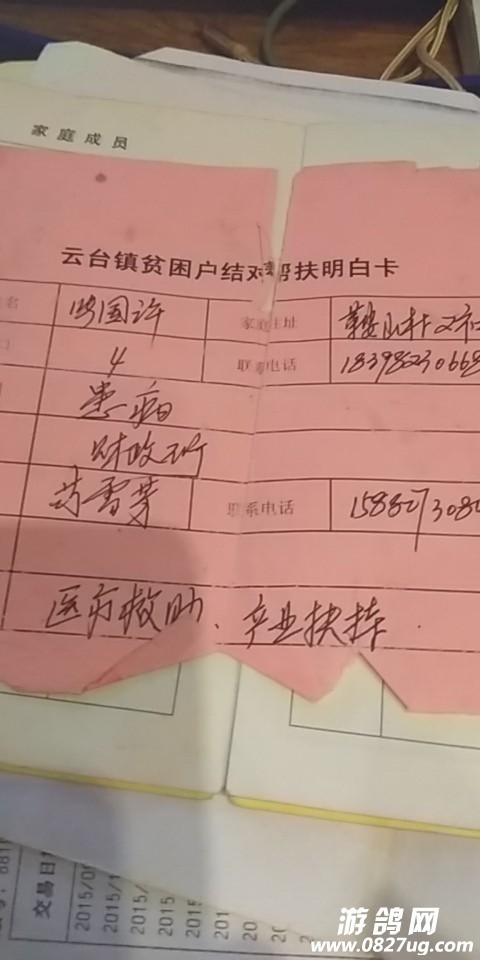 家庭成员
云台镇贫困户结对帮扶明白卡
名 国许 家庭住址 鞍山村2社
口 4 联系电话 18398230668
患病
财政所
苏雪芳 联系电话
医疗救助、产业扶持.
交易日
2015/0
2015/1
2015
2015
2015
2015
2015
游鸽网
www.0827ug.com